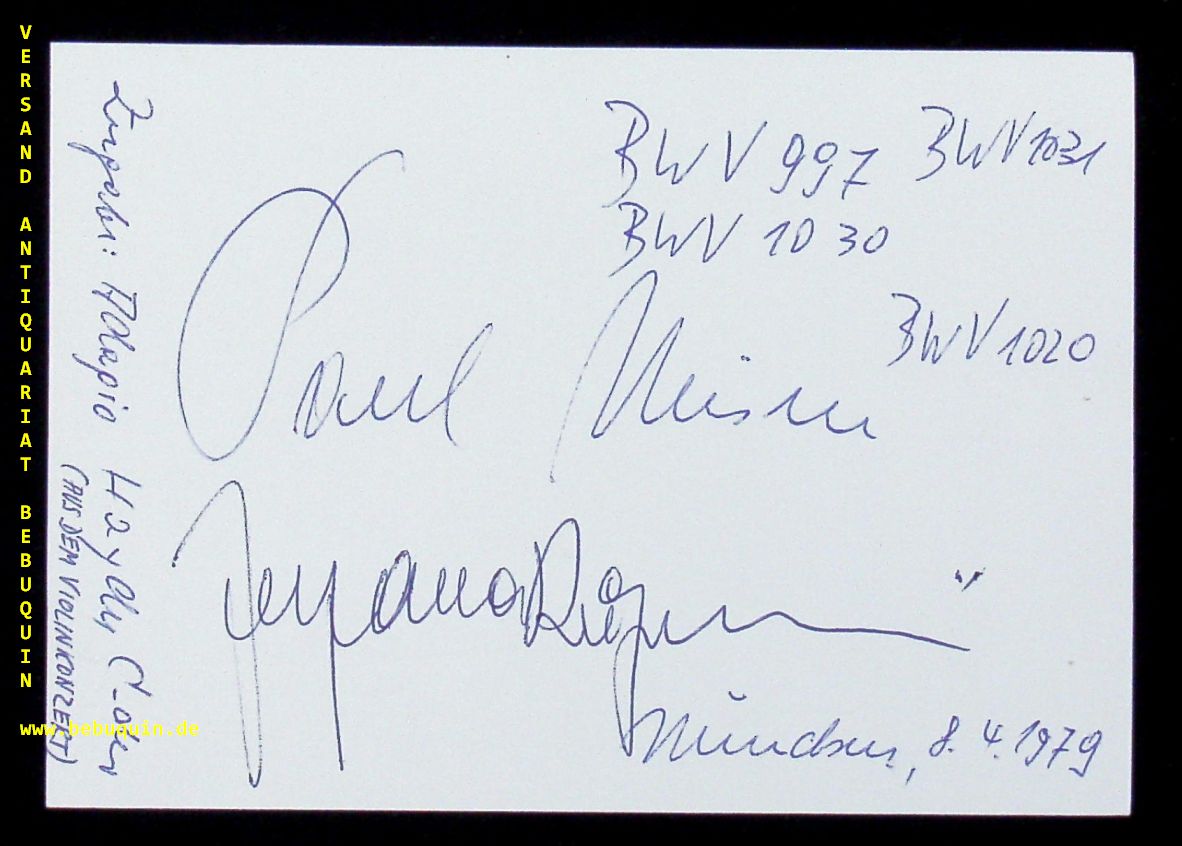 VERSAND ANTIQUARIAT BEBUQUIN
www.bebuquin.de
BWV 997 BWV 1031
BWV 1030
BWV 1020
Paul Meisen
München, 8.4.1979
Zugabe: Adagio Haydn C-Dur
(AUS DEM VIOLINKONZERT)